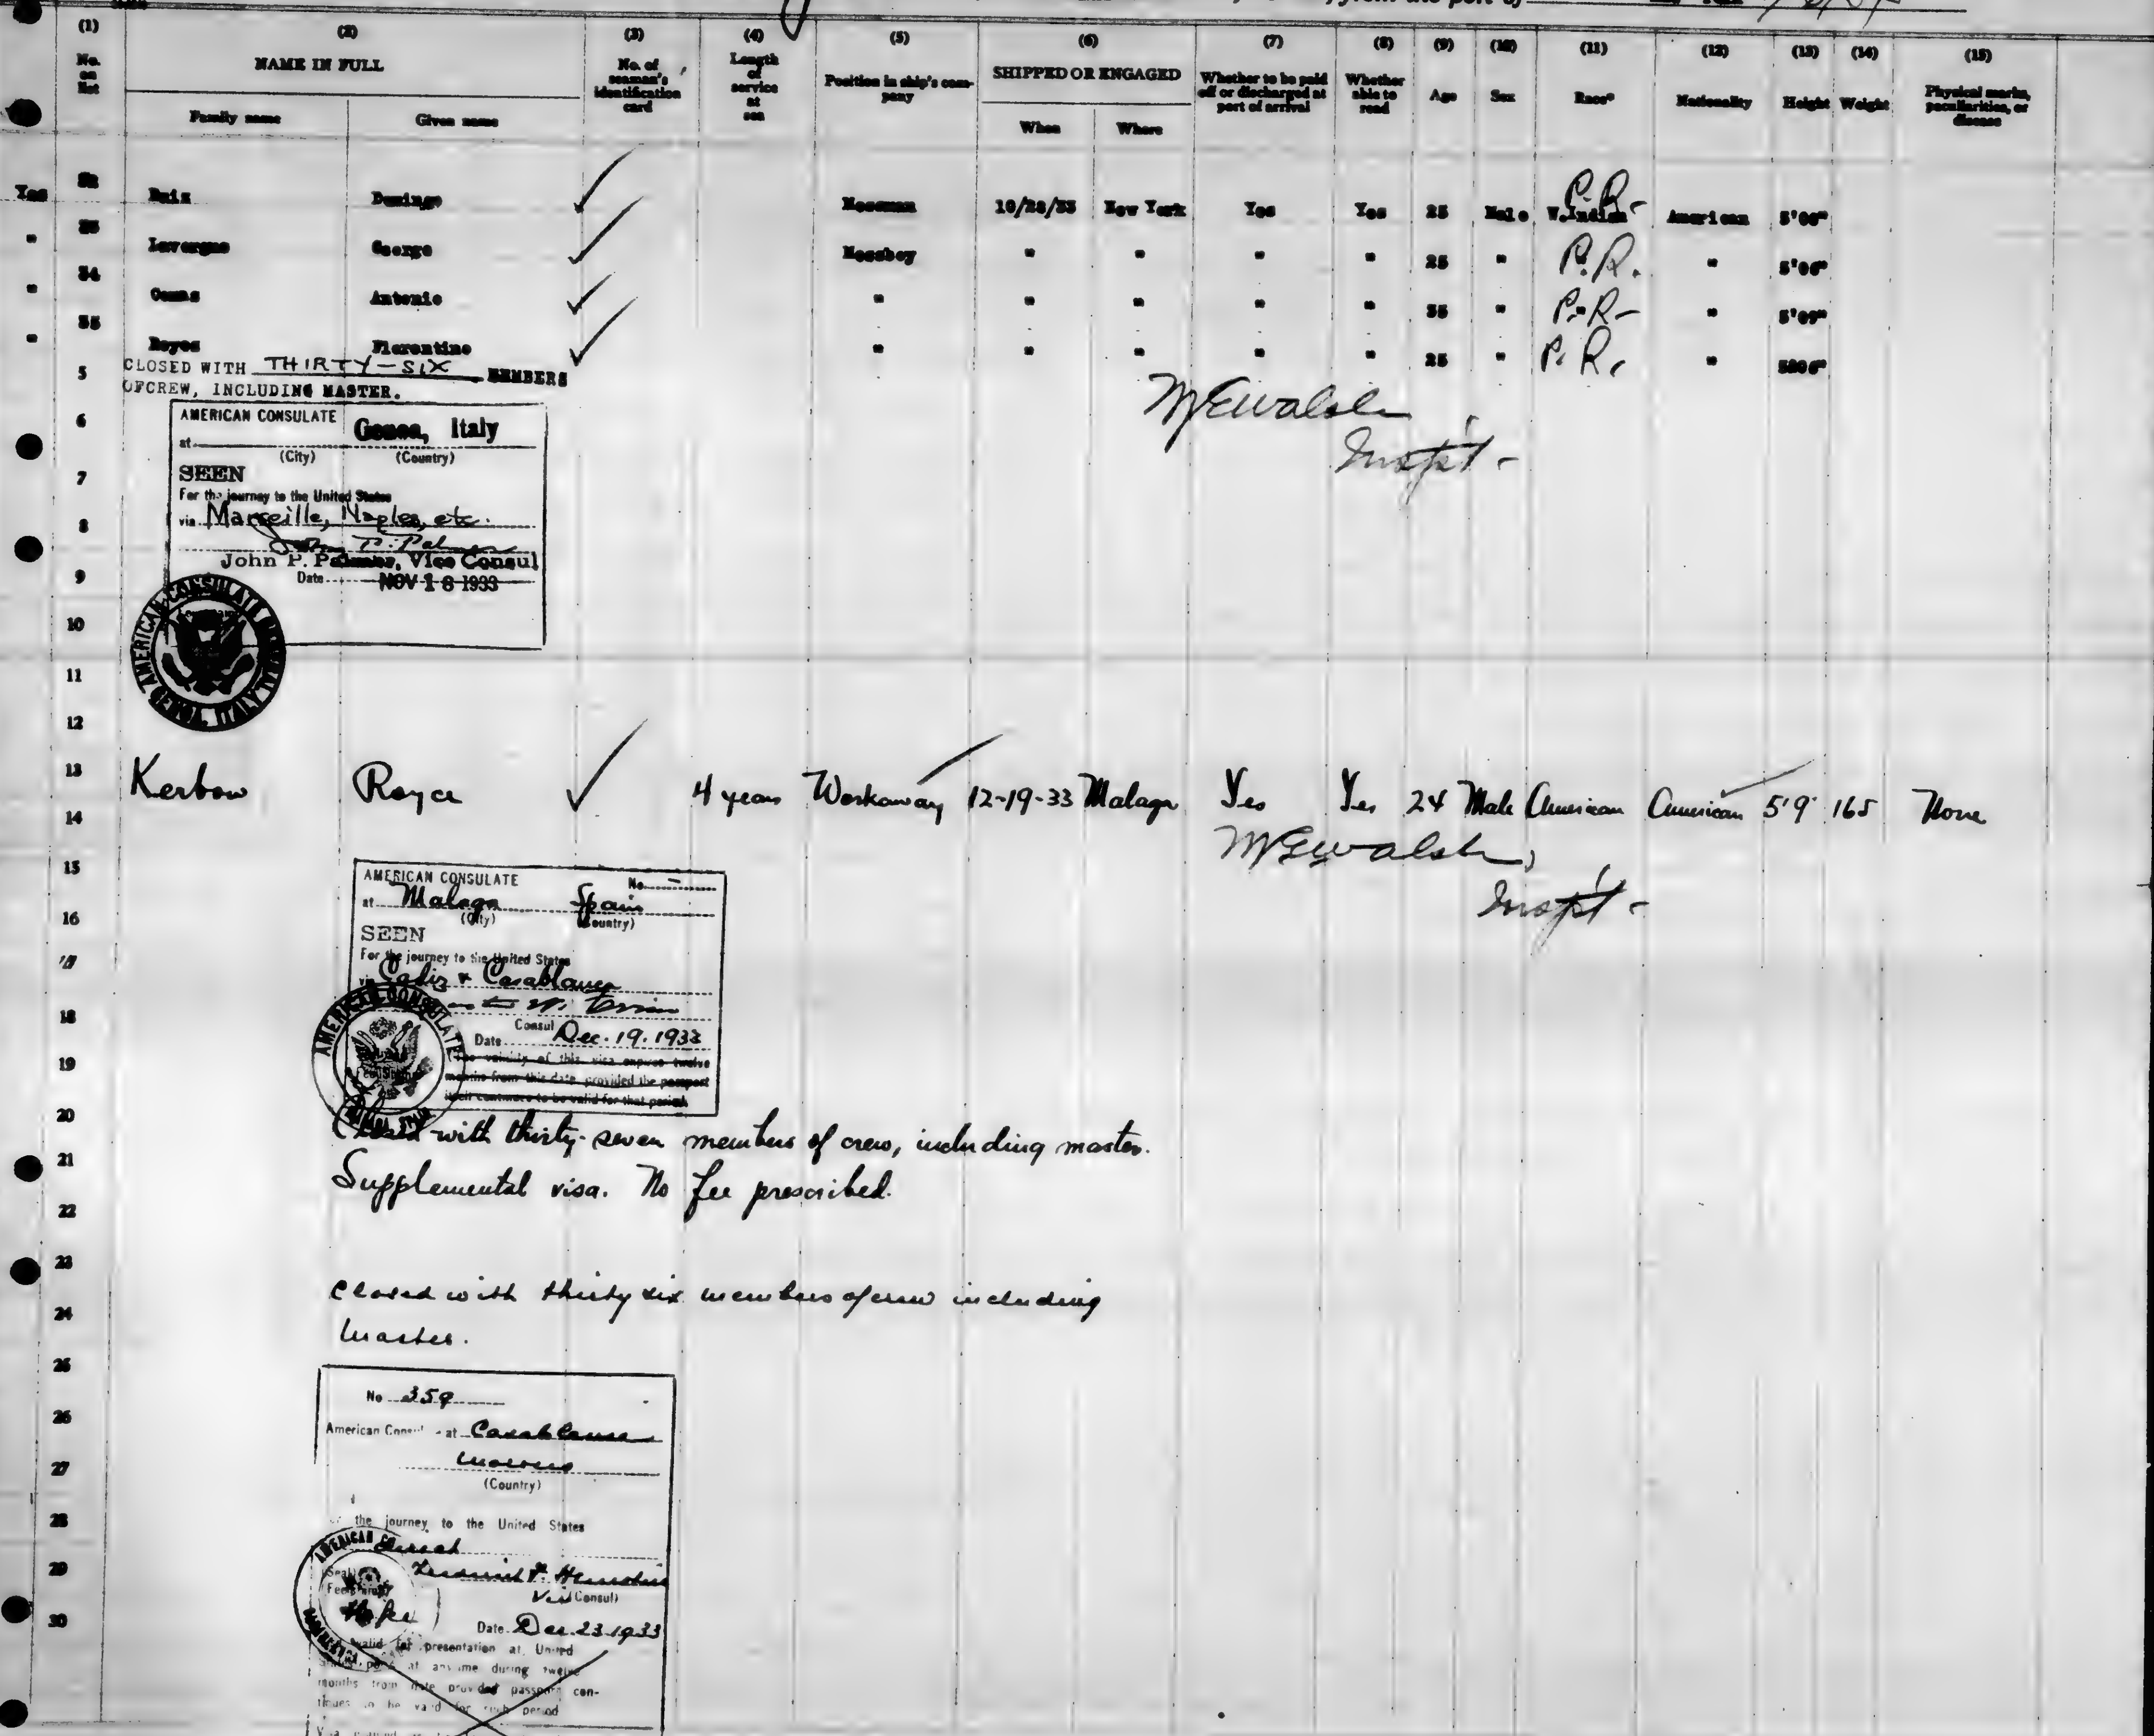 from the port of
(1) (2) (3) (4) (5) (6) (7) (8) (9) (10) (11) (12) (13) (14) (15)
No. on list
NAME IN FULL
Family name Given name
No. of seaman's identification card
Length of service at sea
Position in ship's company
SHIPPED OR ENGAGED
When Where
Whether to be paid off or discharged at port of arrival
Whether able to read
Age
Sex
Race*
Nationality
Height
Weight
Physical marks, peculiarities, or disease
Yes 32 Ruiz Domingo Messman 10/28/33 New York Yes Yes 25 Male W.Indian P.R.- American 5'06"
" 33 Lavergne George Messboy " " " " 25 " P.R. " 5'06"
" 34 Comas Antonio " " " " " 35 " P.R- "
" 35 Reyes Florentino " " " " " 25 " P.R. "
CLOSED WITH THIRTY-SIX MEMBERS
OFCREW, INCLUDING MASTER.
5
M E Walsh
Inspt-
6
AMERICAN CONSULATE
at Genoa, Italy
(City) (Country)
7
SEEN
For the journey to the United States
8
via Marseille, Naples, etc.
John P. Palmer
John P. Palmer, Vice Consul
9
Date NOV 18 1933
10
AMERICAN CONSULATE GENERAL
GENOA, ITALY
11
12
13 Kerbow Royce 4 years Workaway 12-19-33 Malaga Yes Yes 24 Male American American 5'9" 165 None
14
M E Walsh,
Inspt-
15
AMERICAN CONSULATE No. -
at Malaga Spain
16
(City) (Country)
SEEN
For the journey to the United States
17
via Cadiz & Casablanca
18
Consul
Date Dec. 19. 1933
19
The validity of this visa expires twelve
months from this date, provided the passport
itself continues to be valid for that period.
AMERICAN CONSULATE
20
Closed with thirty-seven members of crew, including master.
21
Supplemental visa. No fee prescribed.
22
23
Closed with thirty six members of crew including
24
Master.
25
No 359
26
American Consul at Casablanca
27
Morocco
(Country)
28
the journey to the United States
direct
29
(Seal)
Vice Consul
30
No fee
Date Dec. 23 1933
valid for presentation at United
States ports at anytime during twelve
months from date provided passport con-
tinues to be valid for such period